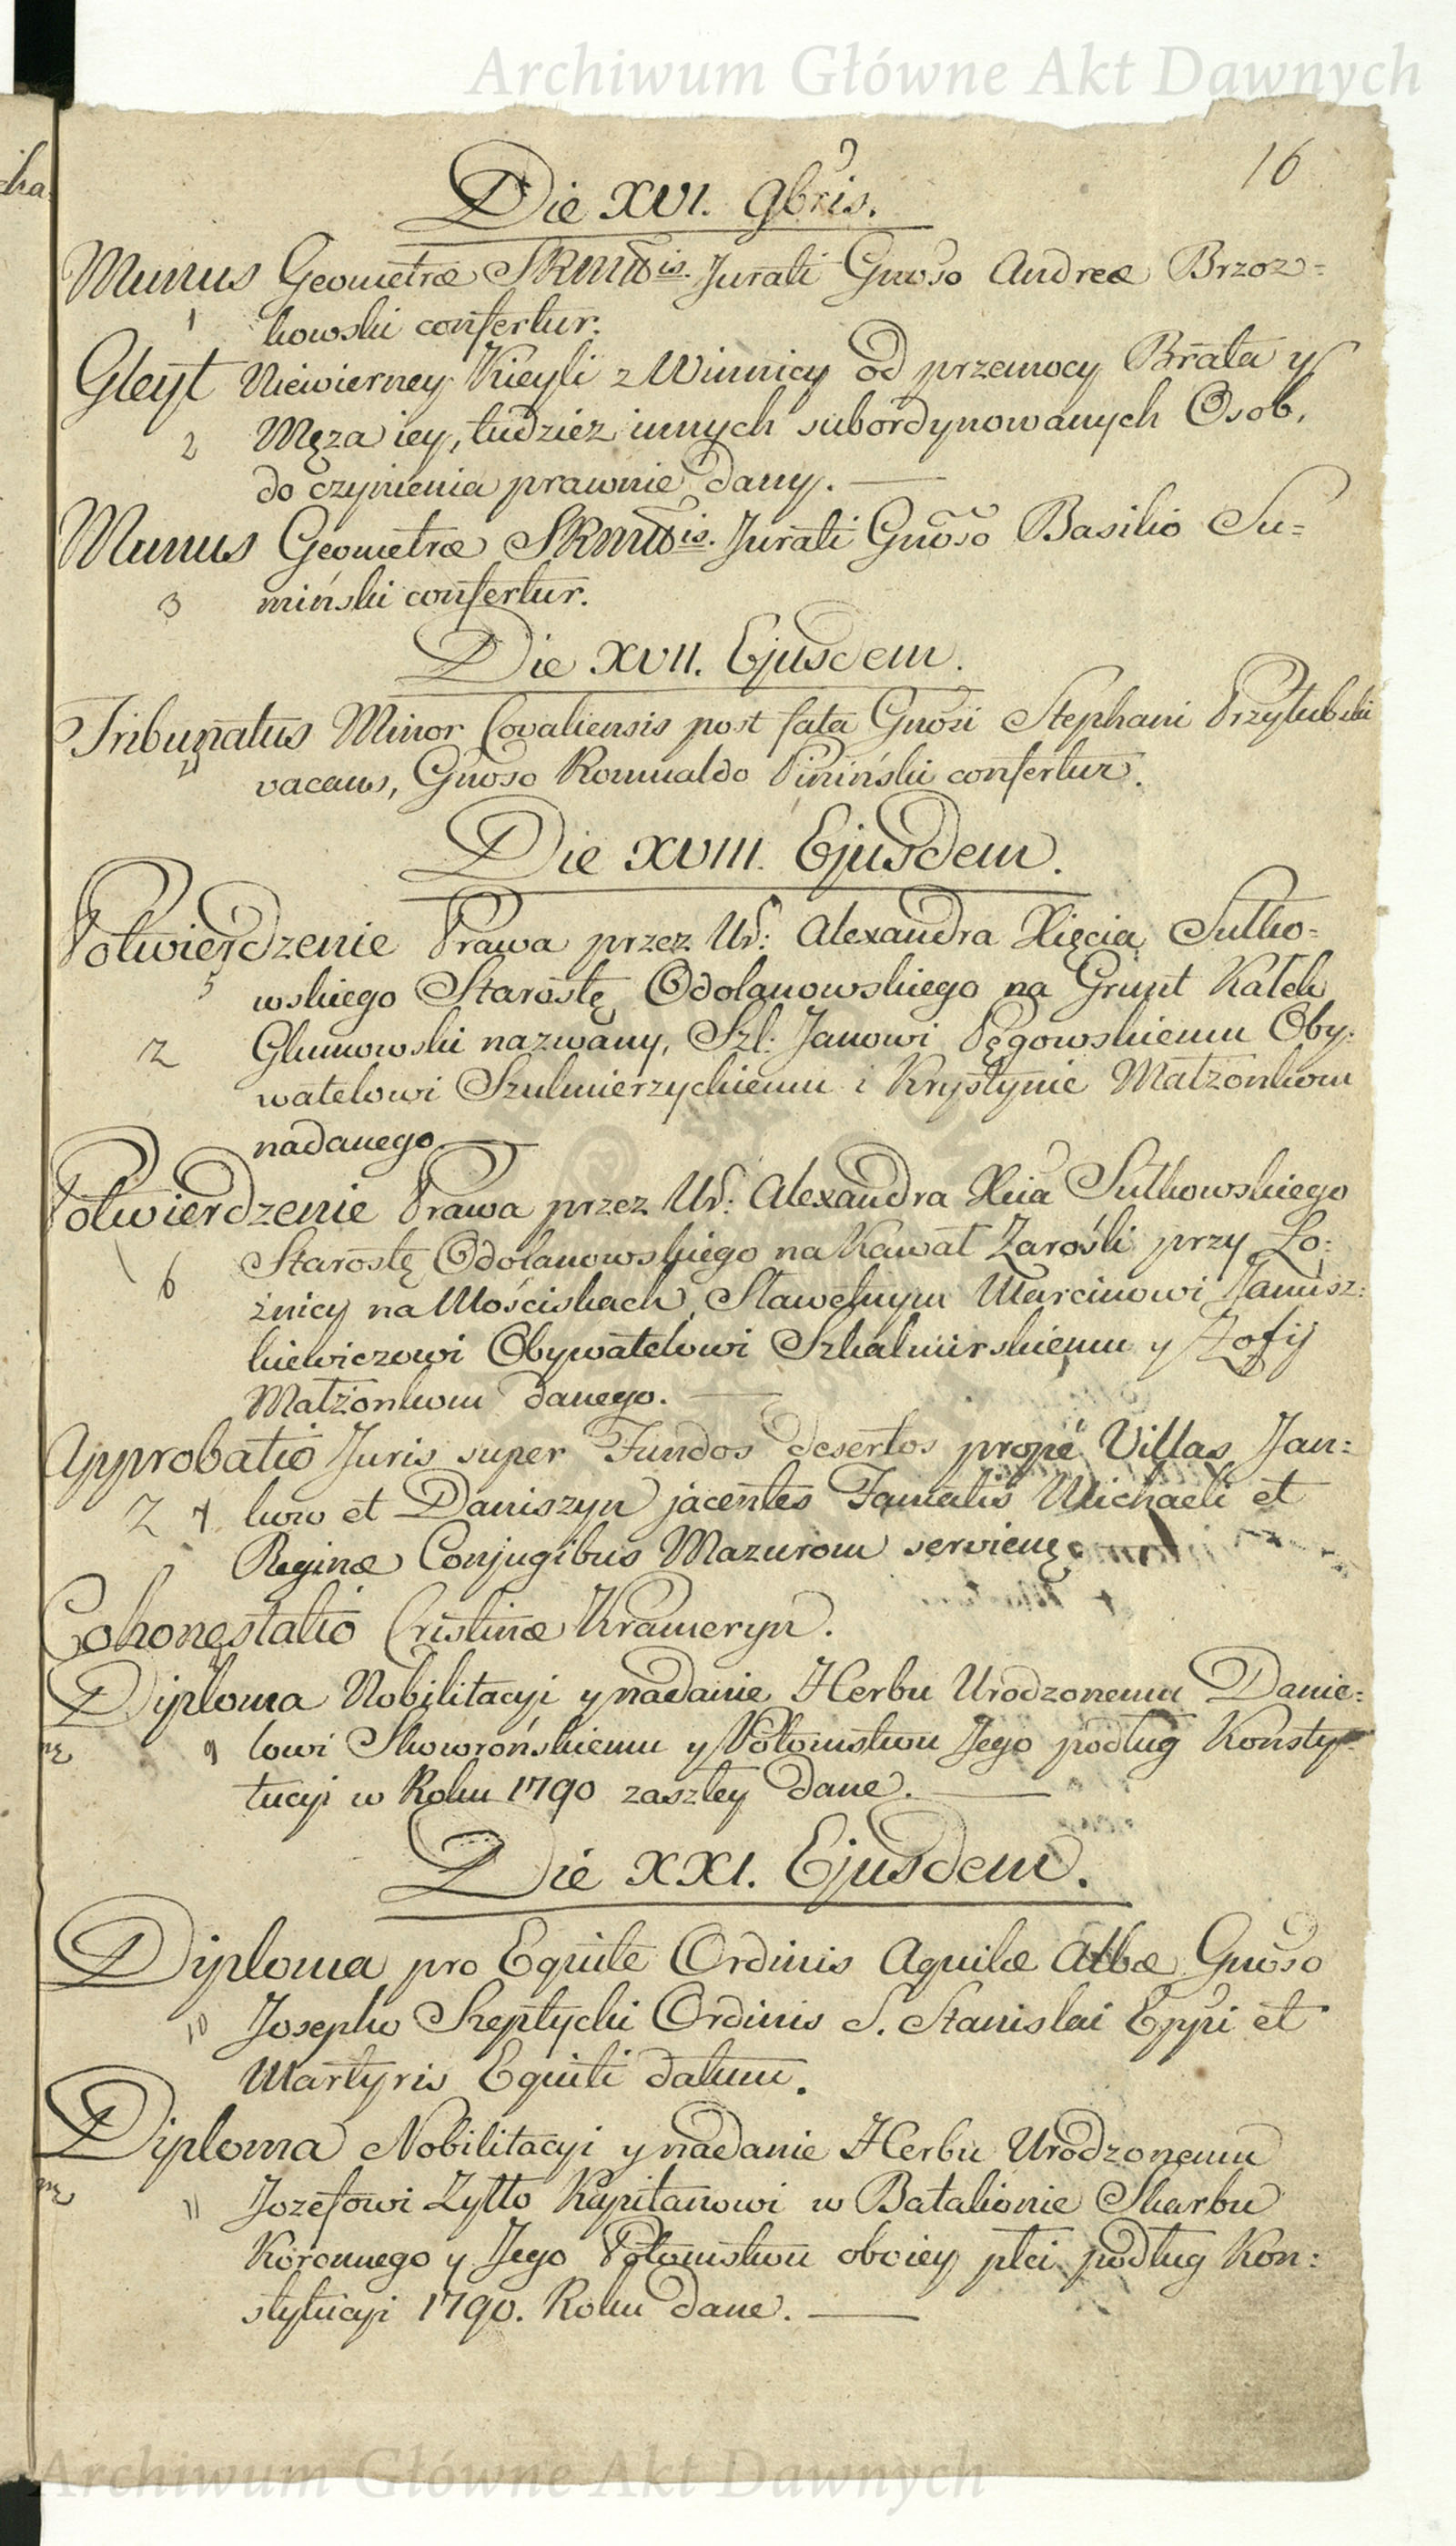 Archiwum Główne Akt Dawnych
16
Die XVI. 9bris.
Munus Geometræ SRMttis. Jurati Gnoso Andreæ Brzoz=
1 kowski confertur.
Gleyt Niewierney Kieyli z Winnicy od przemocy Brata y
2 Męża iey, tudzież innych subordynowanych Osob,
do czynienia prawnie dany.
Munus Geometræ SRMttis. Jurati Gnoso Basilio Su=
3 miński confertur.
Die XVII. Ejusdem.
Tribunatus Minor Covaliensis post fata Gnosi Stephani Przyłubski
4 vacans, Gnoso Romualdo Piniński confertur.
Die XVIII. Ejusdem.
Potwierdzenie Prawa przez Ur: Alexandra Xięcia Sułko=
5 wskiego Starostę Odolanowskiego na Grunt Kątek
2 Glinnowski nazwany, Szl: Janowi Pęgowskiemu Oby:
watelowi Szulmierzyckiemu i Krystynie Małżonkom
nadanego
Potwierdzenie Prawa przez Ur: Alexandra Xcia Sułkowskiego
6 Starostę Odolanowskiego na Kawał Zarośli przy Ło:
żnicy na Mościskach, Sławetnym Marcinowi Janusz:
kiewiczowi Obywatelowi Szkalmirskiemu y Zofij
Małżonkom danego.
Approbatio Juris super Fundos desertos prope Villas Jan:
2 7 kow et Daniszyn jacentes Famatis Michaeli et
Reginæ Conjugibus Mazurom serviens.
Cohonestatio Cristinæ Krameryn.
Diploma Nobilitacyi y nadanie Herbu Urodzonemu Danie:
9 lowi Skowrońskiemu y Potomstwu Jego podług Konsty:
tucyi w Roku 1790 zaszłey dane.
Die XXI. Ejusdem.
Diploma pro Equite Ordinis Aquilæ Albæ Gnoso
10 Josepho Szeptycki Ordinis S. Stanislai Eppi et
Martyris Equiti datum.
Diploma Nobilitacyi y nadanie Herbu Urodzonemu
11 Jozefowi Zytto Kapitanowi w Batalionie Skarbu
Koronnego y Jego Potomstwu oboiey płci podług Kon:
stytucyi 1790. Roku dane.
Archiwum Główne Akt Dawnych